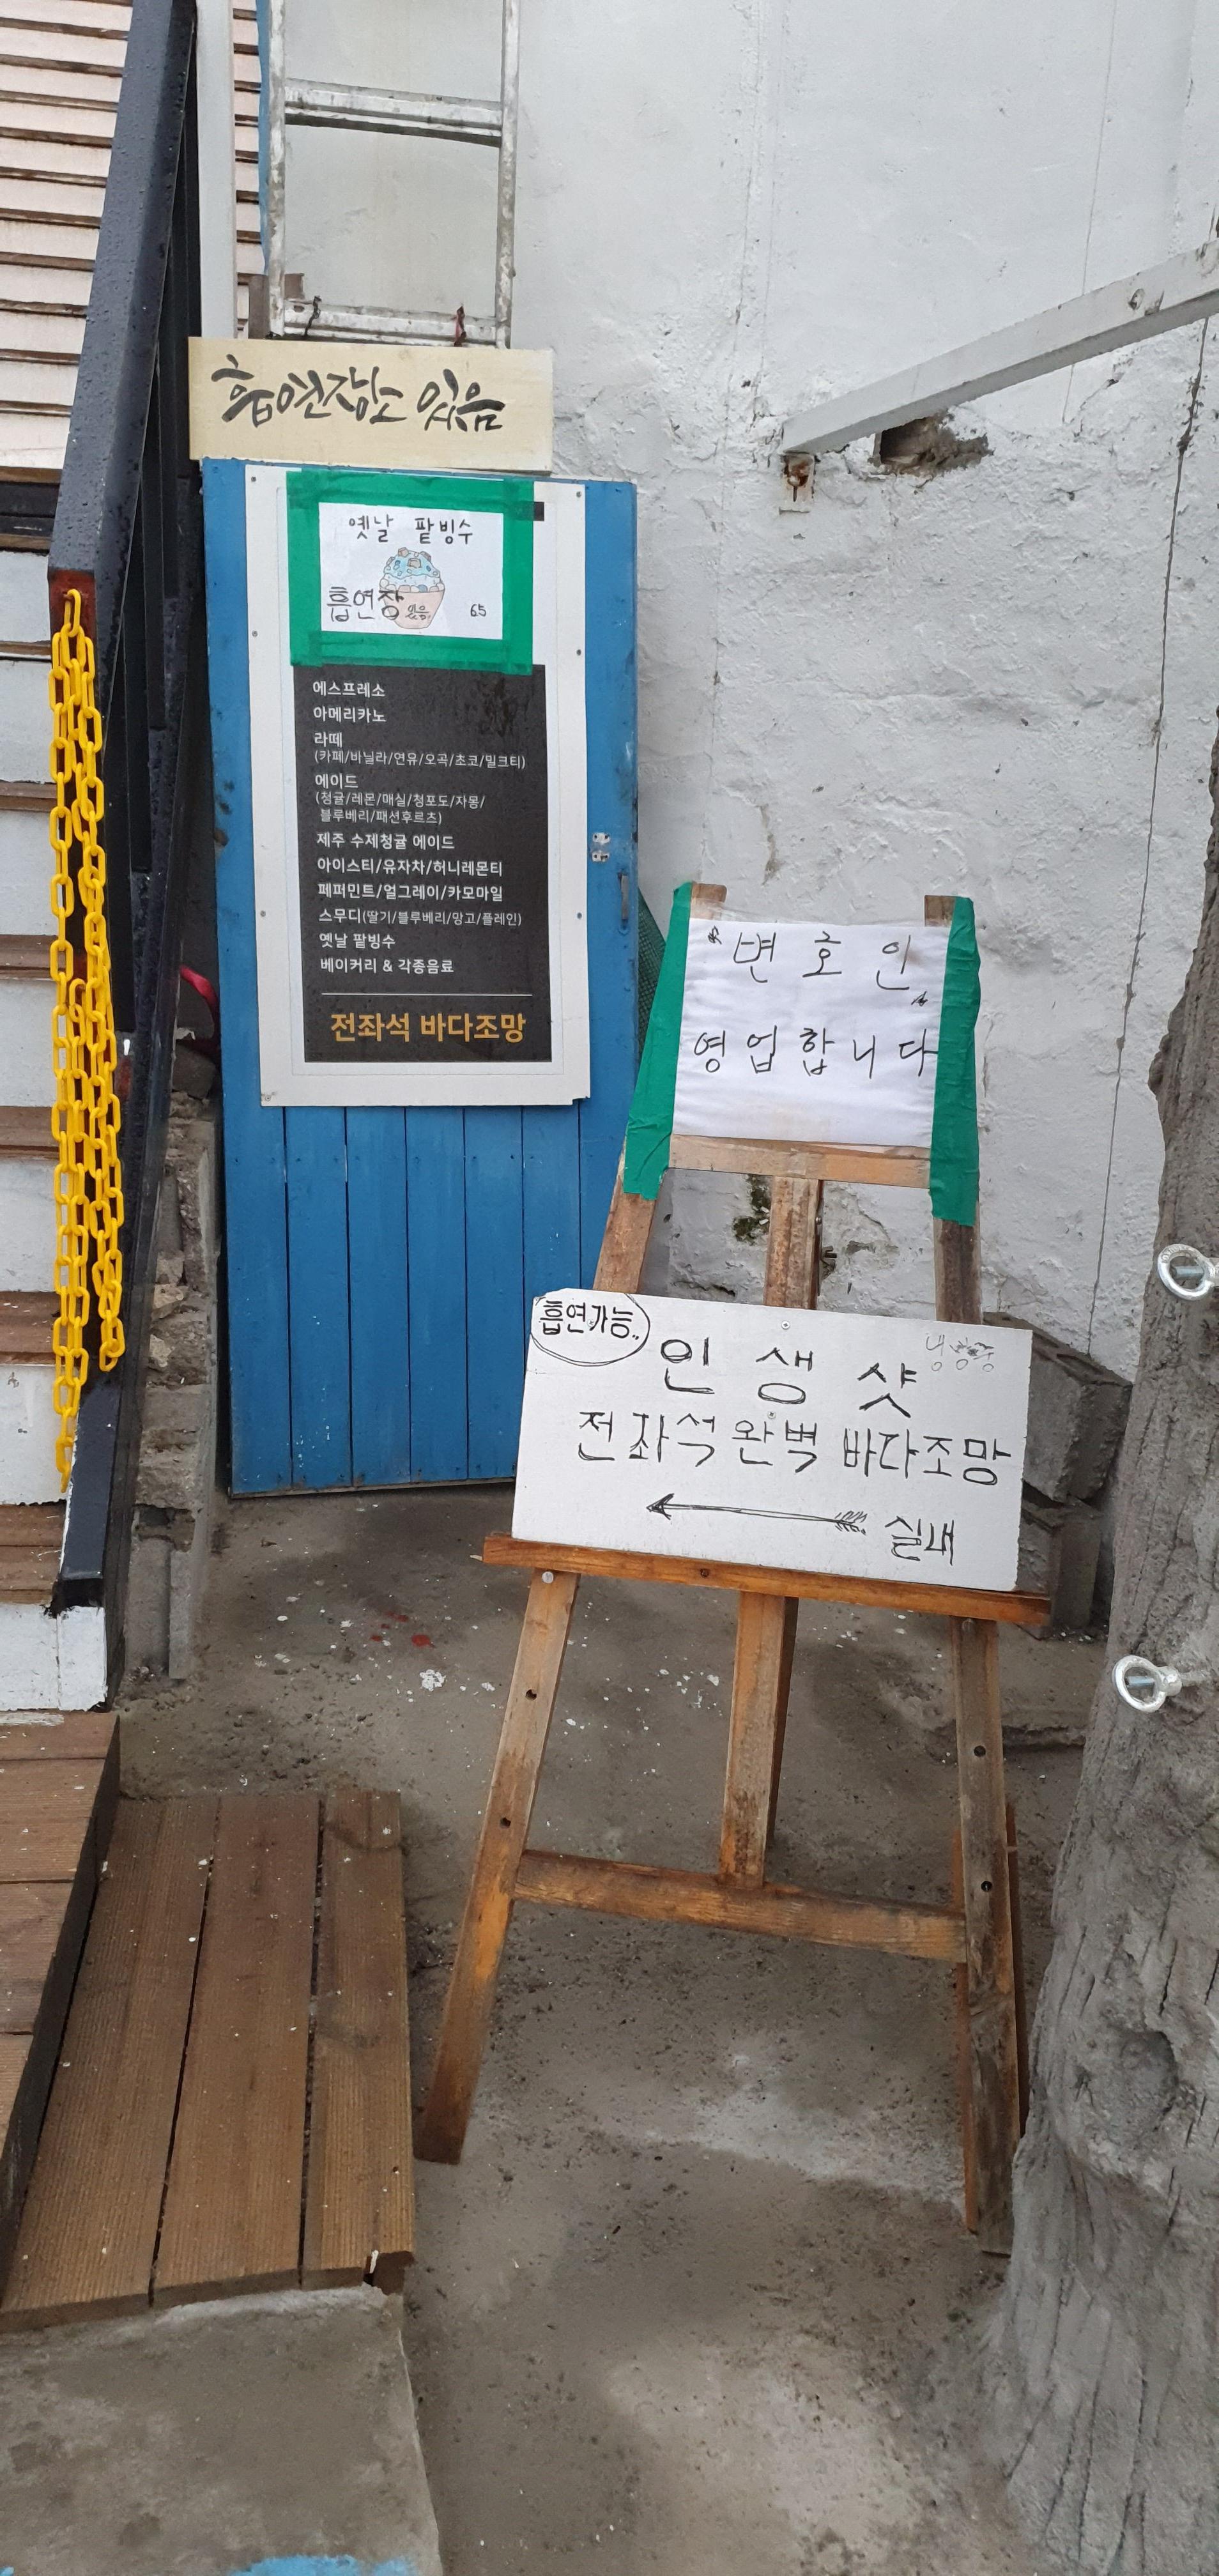 흡연장소 있음
옛날 팥빙수
흡연장 있음
65
에스프레소
아메리카노
라떼
(카페/바닐라/연유/오곡/초코/밀크티)
에이드
(청귤/레몬/매실/청포도/자몽/
블루베리/패션후르츠)
제주 수제청귤 에이드
아이스티/유자차/허니레몬티
페퍼민트/얼그레이/카모마일
스무디(딸기/블루베리/망고/플레인)
옛날 팥빙수
베이커리 & 각종음료
전좌석 바다조망
변호인
영업합니다
흡연가능..
냉방중
인생샷
전좌석 완벽 바다조망
실내